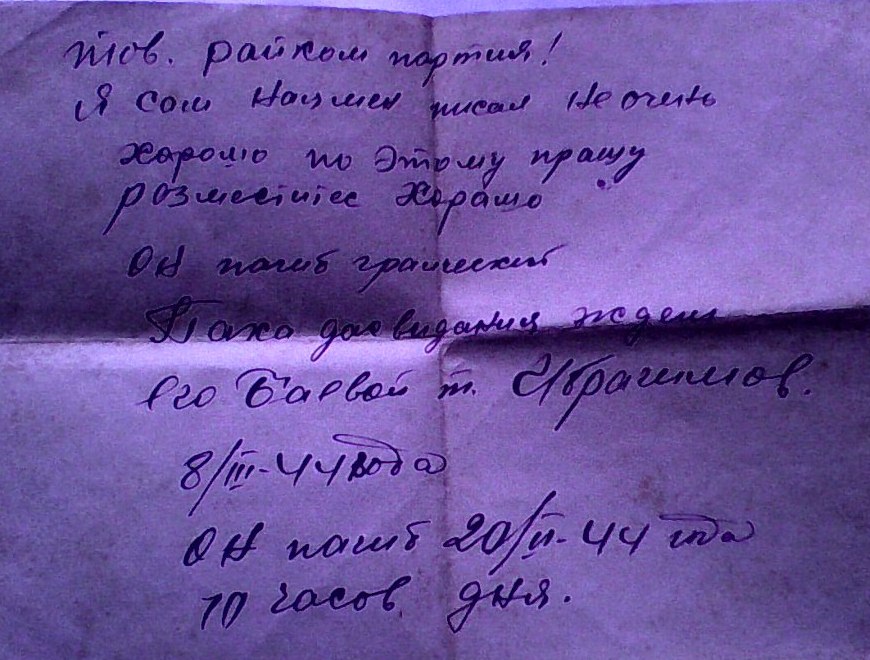 тов. райком партия!
Я сам Нацмен писал не очень
хорошо по этому прашу
розместитес Харашо
он погиб граический
Пака досвидания ждем
его Баевой т. Ибрагимов.
8/III-44 года
он погиб 20/II-44 года
10 часов дня.